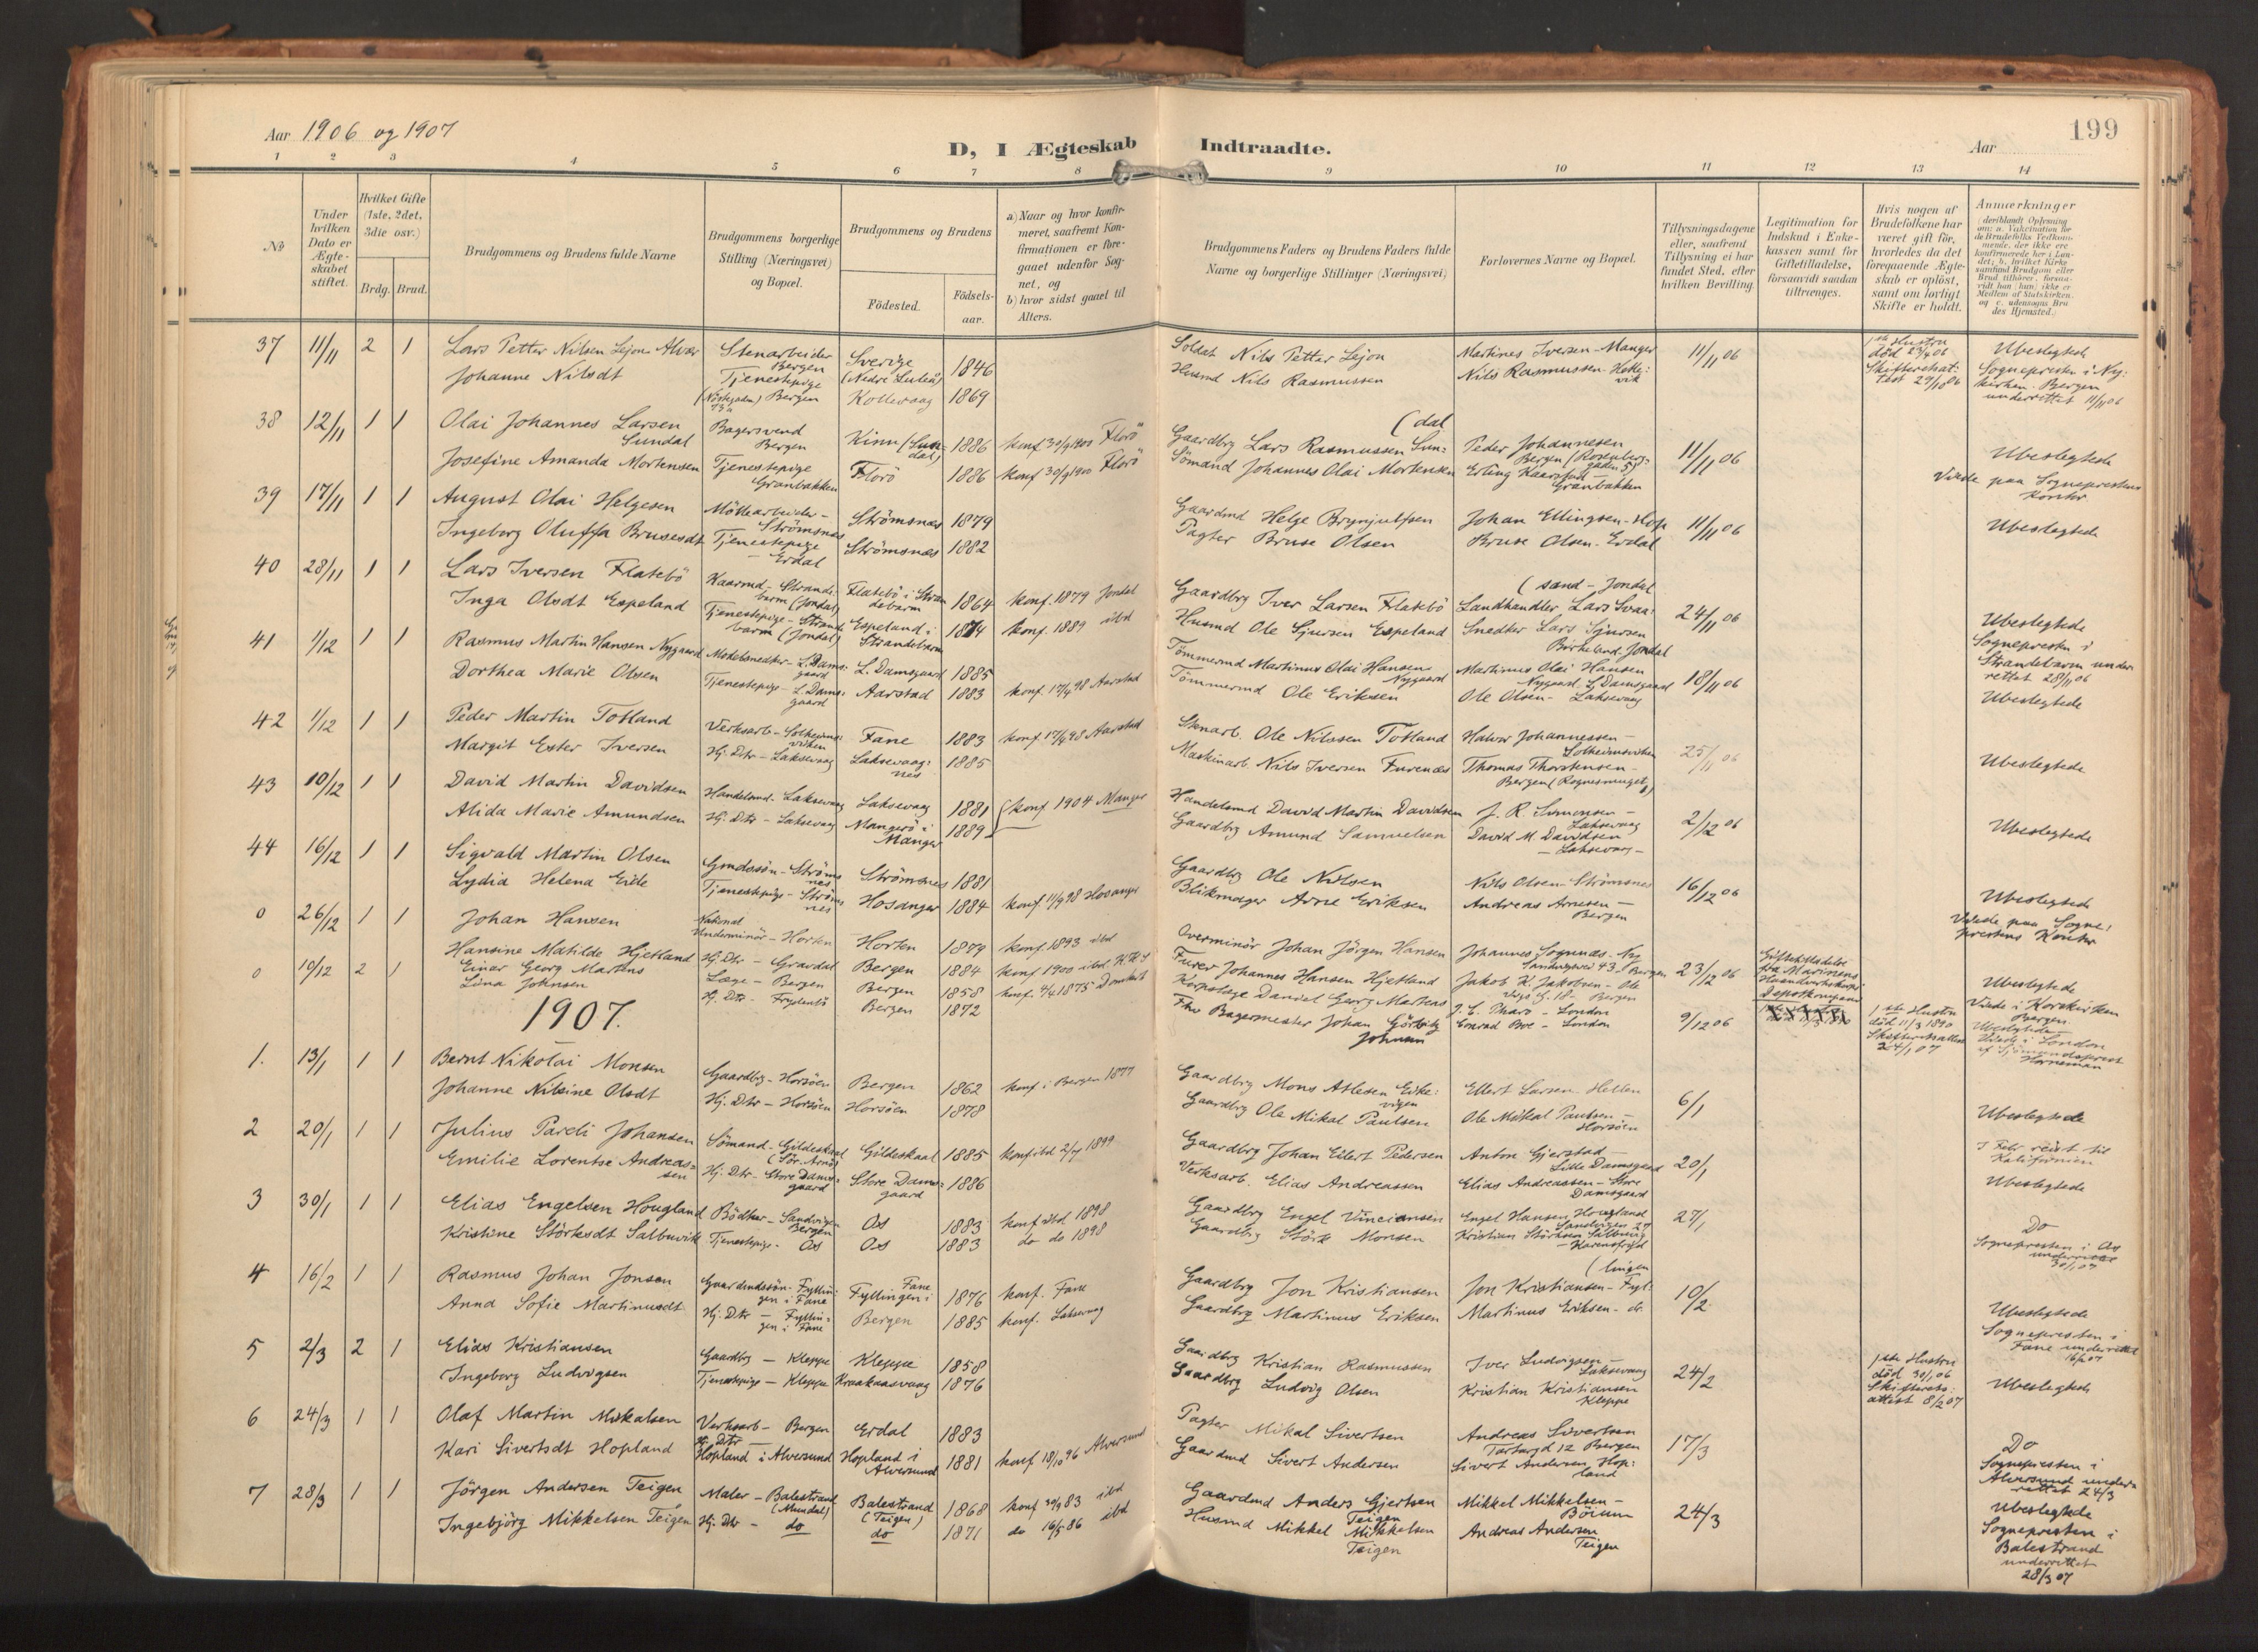 Aar 1906 og 1907
D, I Ægteskab Indtraadte.
Aar
199
1 2 3 4 5 6 7 8 9 10 11 12 13 14
No
Under hvilken Dato er Ægteskabet stiftet.
Hvilket Gifte (1ste, 2det, 3die osv.)
Brdg. Brud.
Brudgommens og Brudens fulde Navne
Brudgommens borgerlige Stilling (Næringsvei) og Bopæl.
Brudgommens og Brudens
Födested.
Födsels-aar.
a) Naar og hvor konfirmeret, saafremt Konfirmationen er foregaaet udenfor Sognet, og
b) hvor sidst gaaet til Alters.
Brudgommens Faders og Brudens Faders fulde Navne og borgerlige Stillinger (Næringsvei)
Forlovernes Navne og Bopæl.
Tillysningsdagene eller, saafremt Tillysning ei har fundet Sted, efter hvilken Bevilling.
Legitimation for Indskud i Enkekassen samt for Giftetilladelse, forsaavidt saadan tiltrænges.
Hvis nogen af Brudefolkene har været gift för, hvorledes da det foregaaende Ægteskab er oplöst, samt om lovligt Skifte er holdt.
Anmærkninger
37 11/11 2 1 Lars Petter Nilsen Lejon Alvær Stenarbeider Bergen Sverige (Nedre Luleå) 1846 Soldat Nils Petter Lejon Martines Iversen - Manger 11/11 06 1ste Hustru död 23/4 06 Ubeslegtede
Johanne Nilsdt Tjenestepige Bergen 1869 Husmd Nils Rasmussen Nils Rasmussen Sognepresten i Nykirken Bergen underrettet 11/11 06
38 12/11 1 1 Olai Johannes Larsen Sundal Bagersvend Bergen Kinn (Sundal) 1886 konf 30/9 1900 Florö Gaardbrg Lars Rasmussen Sun- (dal Peder Johannesen Bergen 11/11 06 Ubeslegtede
Josefine Amanda Mortensen Tjenestepige Granbakken Florö 1886 konf 30/9 1900 Florö Sömand Johannes Olai Mortensen Erling Granbakken Viede paa Sogneprestens Kontor
39 17/11 1 1 August Olai Helgesen Möllearbeider - Strömsnæs Strömsnæs 1879 Gaardmd Helge Brynjulfsen Johan Ellingsen - Hop 11/11 06 Ubeslegtede
Ingeborg Oluffa Brusesdt Tjenestepige - Erdal Strömsnæs 1882 Pagter Bruse Olsen Bruse Olsen - Erdal
40 28/11 1 1 Lars Iversen Flatebö Strandebarm (Jondal) Flatebö i Strandebarm 1864 konf. 1879 Jondal Gaardbrg Iver Larsen Flatebö Landhandler Lars Svaa- (sand - Jondal 24/11 06 Ubeslegtede
Inga Olsdt Espeland Tjenestepige - Strandebarm (Jondal) Espeland i Strandebarm 1874 konf. 1889 ibd Husmd Ole Sjursen Espeland Snedker Lars Sjursen Birkeland Jondal Sognepresten i Strandebarm underrettet 28/11 06
41 1/12 1 1 Rasmus Martin Hansen Nygaard Modelsnedker - L. Damsgaard L. Damsgaard 1885 Tömmermd Martinus Olai Hansen Nygaard Martinus Olai Hansen Nygaard, L. Damsgaard 18/11 06 Ubeslegtede
Dorthea Marie Olsen Tjenestepige - L. Damsgaard Aarstad 1883 konf. 17/4 98 Aarstad Tömmermd Ole Eriksen Ole Olsen - Laksevaag
42 1/12 1 1 Peder Martin Totland Verksarb - Solheimsviken Fane 1883 konf. 17/4 98 Aarstad Stenarb. Ole Nilssen Totland Halvor Johannessen - Solheimsviken 25/11 06 Ubeslegtede
Margit Ester Iversen Hj. Dtr - Laksevaag Laksevaagnes 1885 Maskinarb Nils Iversen Furenæs Thomas Thorstensen - Bergen
43 10/12 1 1 David Martin Davidsen Handelsmd - Laksevaag Laksevaag 1881 Handelsmd David Martin Davidsen J. R. Simonsen - Laksevaag 2/12 06 Ubeslegtede
Alida Marie Amundsen Hj. Dtr - Laksevaag Mangerö i Manger 1889 konf 1904 Manger Gaardbrg Amund Samuelsen David M. Davidsen - Laksevaag -
44 16/12 1 1 Sigvald Martin Olsen Gmdssön - Strömsnes Strömsnes 1881 Gaardbrg Ole Nilsen Nils Olsen - Strömsnes 16/12 06 Ubeslegtede
Lydia Helena Eide Tjenestepige - Strömsnes Hosanger 1884 konf 11/9 98 Hosanger Blikmager Arne Eriksen Andreas Arnesen - Bergen Viede paa Sogneprestens Kontor
0 26/12 1 1 Johan Hansen Underminör - Horten Horten 1879 konf. 1893 ibd Overminör Johan Jörgen Hansen Johannes Sognnæs. Ny Sandvigsvei 43 - Bergen 23/12 06 Ubeslegtede
Hansine Matilde Hjetland Hj. Dtr - Gravdal Bergen 1884 konf 1900 ibd Furer Johannes Hansen Hjetland Jakob K. Jakobsen - Bergen Viede i Korskirken Bergen
0 10/12 2 1 Einar Georg Martens Læge - Bergen Bergen 1858 konf. 4/4 1875 Domkirk Korpslæge Daniel Georg Martens London 9/12 06 1ste Hustru död 11/3 1890 Ubeslegtede
Lina Johnsen Hj. Dtr - Frydenbö Bergen 1872 Fhv Bagermester Johan Görbitz Johnsen Conrad Boe - London Viede i London af Sjömandsprest Horneman
1907.
1. 13/1 1 1 Bernt Nikolai Monsen Gaardbrg - Horsöen Bergen 1862 konf i Bergen 1877 Gaardbrg Mons Atlesen Eikevigen Ellert Larsen Hellen 6/1 Ubeslegtede
Johanne Nilsine Olsdt Hj. Dtr - Horsöen Horsöen 1878 Gaardbrg Ole Mikal Paulsen Ole Mikal Paulsen - Horsöen
2 20/1 1 1 Julius Pareli Johansen Sömand - Gildeskaal (Sör. Arnö) Gildeskaal 1885 konf ibd 2/7 1899 Gaardbrg Johan Eilert Pedersen Anton Gjerstad - Lille Damsgaard 20/1 I Febr reist til Kalifornien
Emilie Lorentse Andreassen Hj. Dtr - Store Damsgaard Store Damsgaard 1886 Verksarb. Elias Andreassen Elias Andreassen - Store Damsgaard Ubeslegtede
3 30/1 1 1 Elias Engelsen Hougland Bödker - Sandvigen Bergen Os 1883 konf ibd 1898 Gaardbrg Engel Vinciansen Engel Hansen Hougland Sandvigen 27 27/1 Do
Kristine Störksdt Salbuvik Tjenestepige - Os Os 1883 do do 1898 Gaardbrg Störk Monsen Kristian Störksen Salbuvig Sognepresten i Os underrettet 30/1 07
4 16/2 1 1 Rasmus Johan Jonsen Gaardmdssön - Fyllingen i Fane Fyllingen i Fane 1876 konf. Fane Gaardbrg Jon Kristiansen Jon Kristiansen - Fyl- (lingen 10/2 Ubeslegtede
Anna Sofie Martinusdt Hj. Dtr - Fyllingen i Fane Bergen 1885 konf. Laksevaag Gaardbrg Martinus Eriksen Martinus Eriksen - do. Sognepresten i Fane underrettet 16/2 07
5 2/3 2 1 Elias Kristiansen Gaardbrg - Kleppe Kleppe 1858 Gaardbrg Kristian Rasmussen Iver Ludvigsen - Laksevaag 24/2 1ste Hustru död 30/1 06 Skifterets attest 8/2 07 Ubeslegtede
Ingeborg Ludvigsen Tjenestepige - Kleppe Kraakaasvaag 1876 Gaardbrg Ludvig Olsen Kristian Kristiansen Kleppe
6 24/3 1 1 Olaf Martin Mikalsen Verksarb - Bergen Erdal 1883 Pagter Mikal Sivertsen Andreas Sivertsen Bergen 17/3 Do
Kari Sivertsdt Hopland Hj. Dtr - Hopland i Alversund Hopland i Alversund 1881 konf 18/10 96 Alversund Gaardmd Sivert Andersen Sivert Andersen Hopland Sognepresten i Alversund underrettet 24/3
7 28/3 1 1 Jörgen Andersen Teigen Maler - Balestrand (Mundal) Balestrand (Teigen) 1868 konf 30/9 83 ibd Gaardmd Anders Gjertsen Teigen Mikkel Mikkelsen - Böium 24/3 Ubeslegtede
Ingebjörg Mikkelsen Teigen Hj. Dtr - do do 1871 do 16/5 86 ibd Husmd Mikkel Mikkelsen Teigen Andreas Andersen Teigen Sognepresten i Balestrand underrettet 28/3 07